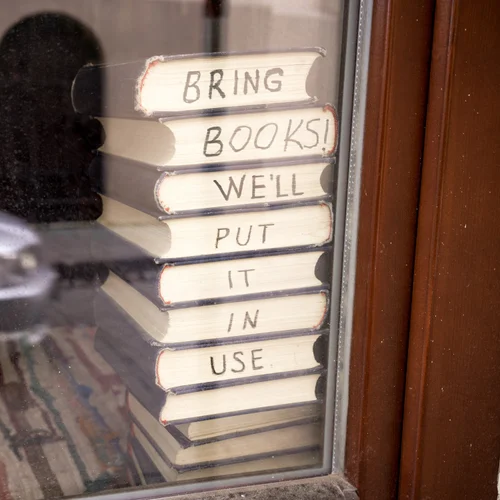 BRING
BOOKS!
WE'LL
PUT
IT
IN
USE.